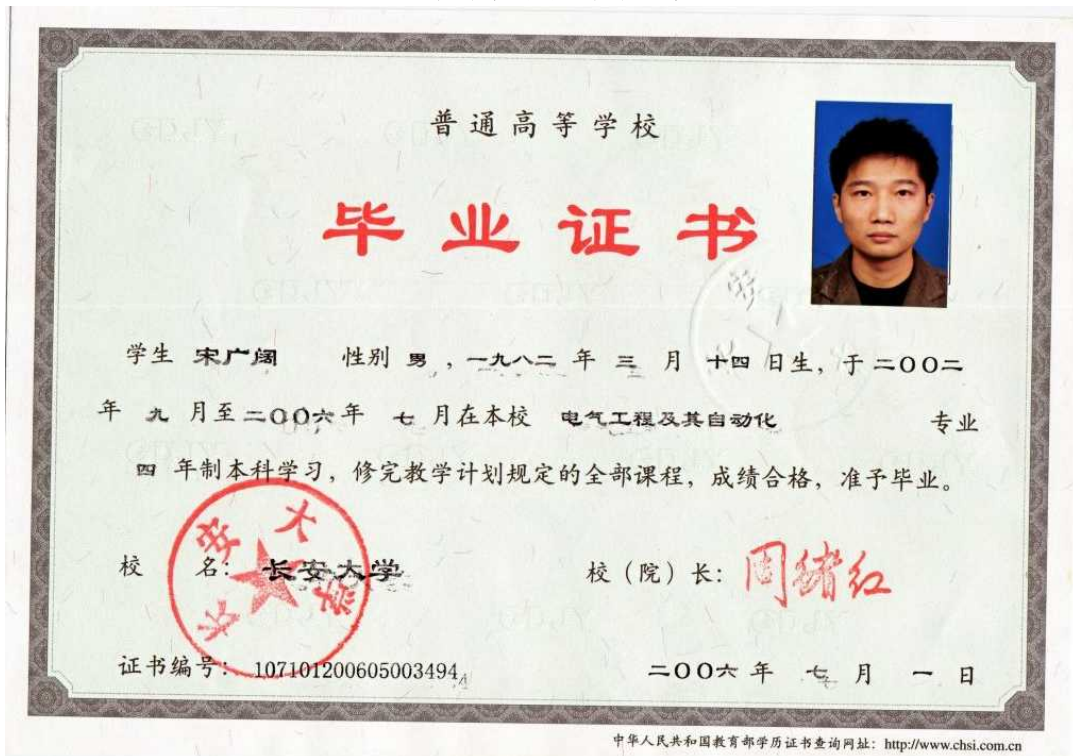 普通高等学校
毕业证书
学生 宋广阔 性别 男，一九八二 年 三 月 十四 日生，于二〇〇二
年 九 月至二〇〇六年 七 月在本校 电气工程及其自动化 专业
四 年制本科学习，修完教学计划规定的全部课程，成绩合格，准予毕业。
校 名：长安大学 校（院）长：周绪红
长安大学
证书编号：107101200605003494 二〇〇六 年 七 月 一 日
中华人民共和国教育部学历证书查询网址：http://www.chsi.com.cn